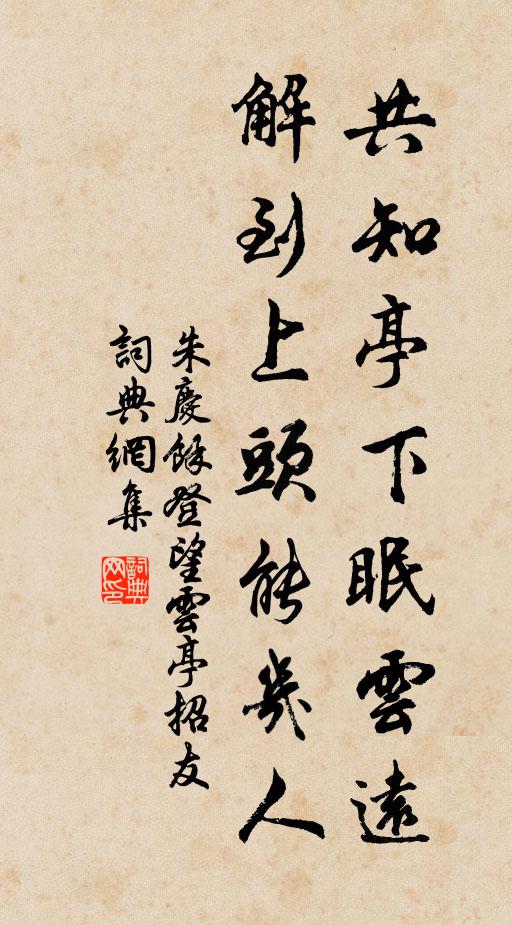 共知亭下眠雲遠
解到上頭能幾人
朱慶餘登望雲亭招友
詞典網集
詞典網印